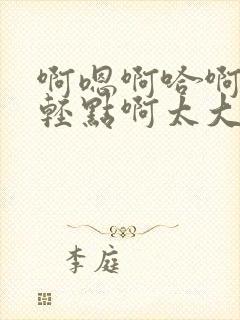 啊嗯啊哈啊
輕點啊太大
李庭